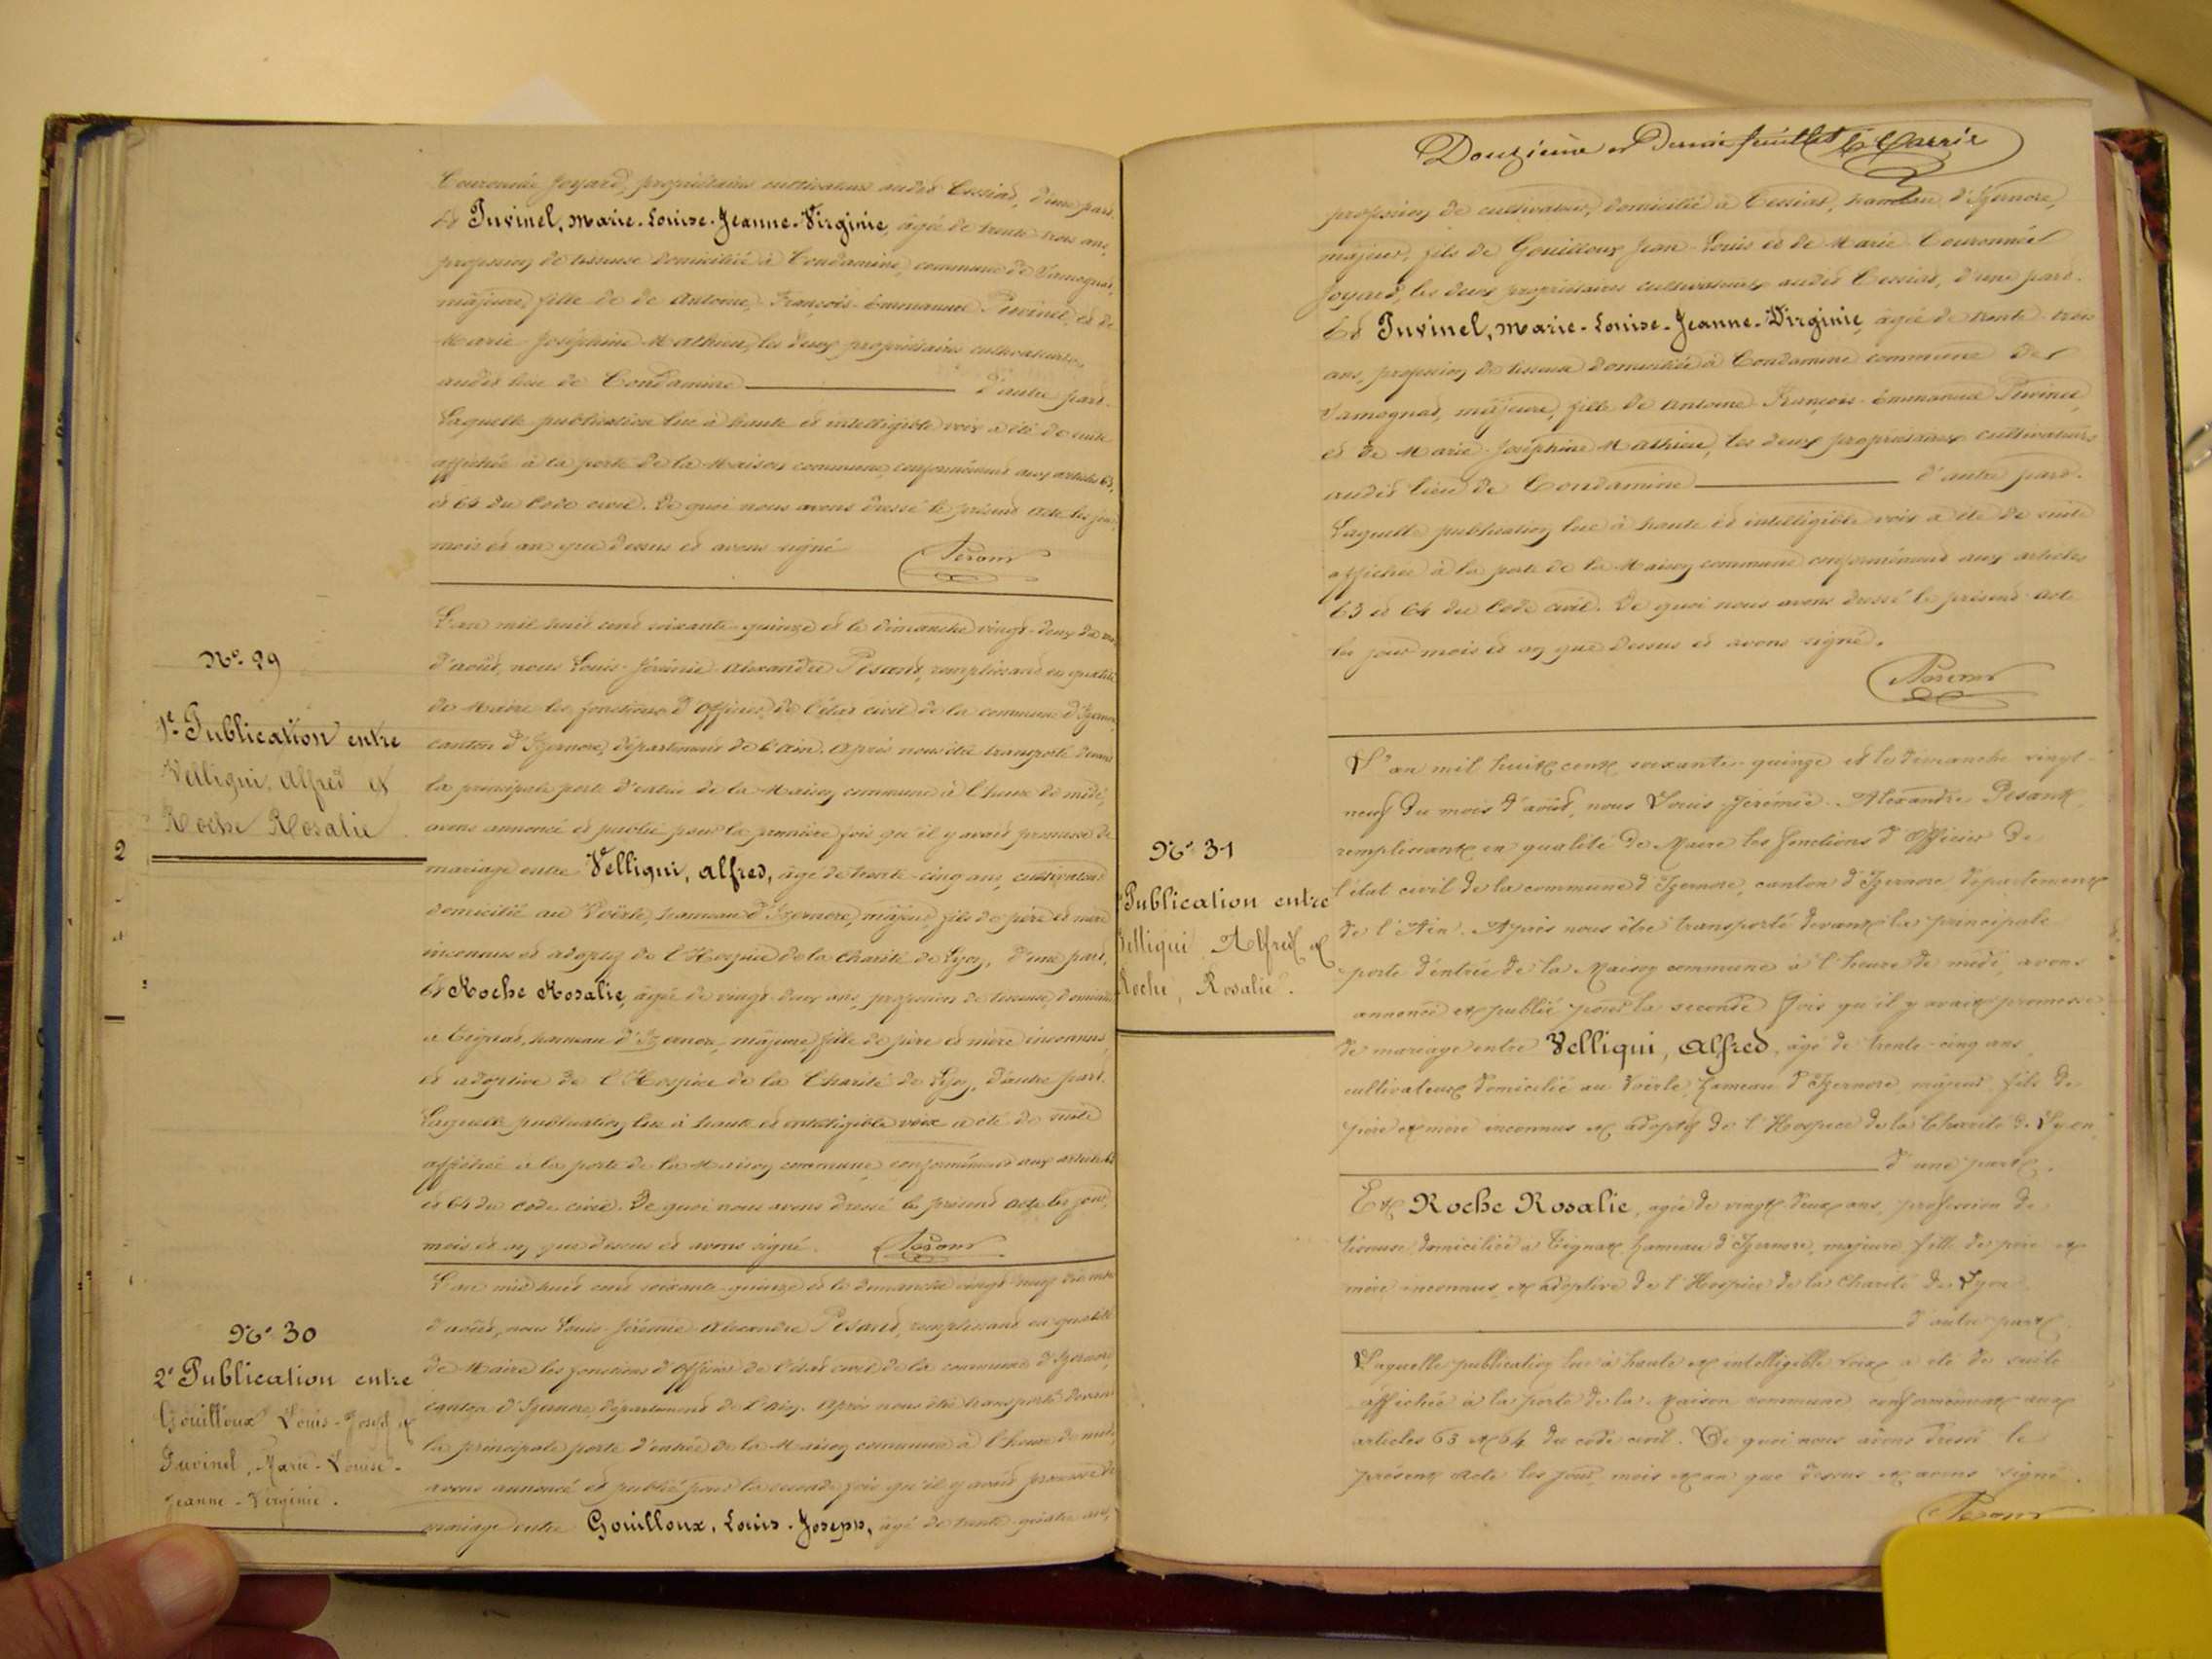 Couronnée Joyard, propriétaires cultivateurs audit Cessiat, d'une part.
Et Puvinel, Marie-Louise-Jeanne-Virginie, âgée de trente trois ans,
profession de tisseuse domiciliée à Condamine, commune de Samognat,
majeure, fille de de Antoine, François-Emmanuel Puvinel, et de
Marie Joséphine Mathieu, les deux propriétaires cultivateurs,
audit lieu de Condamine d'autre part.
Laquelle publication lue à haute et intelligible voix a été de suite
affichée à la porte de la Maison commune, conformément aux articles 63,
et 64 du Code civil. De quoi nous avons dressé le présent acte les jour
mois et an que dessus et avons signé
Nº 29
1e Publication entre
Velliqui, Alfred et
Roche Rosalie
L'an mil huit cent soixante-quinze et le dimanche vingt-deux du mois
d'août, nous Louis-Jérémie-Alexandre Pesant, remplissant en qualité
de Maire les fonctions d'Officier de l'état civil de la commune d'Izernore
canton d'Izernore, département de l'Ain. Après nous être transporté devant
la principale porte d'entrée de la Maison commune à l'heure de midi,
avons annoncé et publié pour la première fois qu'il y avait promesse de
mariage entre Velliqui, Alfred, âgé de trente-cinq ans, cultivateur
domicilié au Voërle, hameau d'Izernore, majeur, fils de père et mère
inconnus et adoptif de l'Hospice de la Charité de Lyon, d'une part,
Et Roche Rosalie, âgée de vingt-deux ans, profession de tisseuse, domiciliée
à Tignat, hameau d'Izernore, majeure, fille de père et mère inconnus,
et adoptive de l'Hospice de la Charité de Lyon, d'autre part.
Laquelle publication lue à haute et intelligible voix a été de suite
affichée à la porte de la Maison commune, conformément aux articles 63
et 64 du code civil. De quoi nous avons dressé le présent acte les jour,
mois et an que dessus et avons signé.
Nº 30
2e Publication entre
Gouilloux Louis-Joseph et
Puvinel, Marie-Louise-
Jeanne-Virginie.
L'an mil huit cent soixante-quinze et le dimanche vingt-neuf du mois
d'août, nous Louis-Jérémie-Alexandre Pesant, remplissant en qualité
de Maire les fonctions d'Officier de l'état civil de la commune d'Izernore,
canton d'Izernore, département de l'Ain. Après nous être transporté devant
la principale porte d'entrée de la Maison commune à l'heure de midi,
avons annoncé et publié pour la seconde fois qu'il y avait promesse de
mariage entre Gouilloux, Louis-Joseph, âgé de trente-quatre ans,
Douzième et Dernier feuillet
profession de cultivateur, domicilié à Cessiat, hameau d'Izernore,
majeur, fils de Gouilloux Jean-Louis et de Marie Couronnée
Joyard, les deux propriétaires cultivateurs audit Cessiat, d'une part.
Et Puvinel, Marie-Louise-Jeanne-Virginie, âgée de trente-trois
ans, profession de tisseuse domiciliée à Condamine commune de
Samognat, majeure, fille de Antoine François-Emmanuel Puvinel,
et de Marie-Joséphine Mathieu, les deux propriétaires cultivateurs
audit lieu de Condamine d'autre part.
Laquelle publication lue à haute et intelligible voix a été de suite
affichée à la porte de la Maison commune conformément aux articles
63 et 64 du Code civil. De quoi nous avons dressé le présent acte
les jour mois et an que dessus et avons signé.
Nº 31
Publication entre
Velliqui Alfred et
Roche, Rosalie.
L'an mil huit cent soixante-quinze et le dimanche vingt-
neuf du mois d'août, nous Louis-Jérémie-Alexandre Pesant
remplissant en qualité de Maire les fonctions d'Officier de
l'état civil de la commune d'Izernore, canton d'Izernore département
de l'Ain. Après nous être transporté devant la principale
porte d'entrée de la Maison commune à l'heure de midi, avons
annoncé et publié pour la seconde fois qu'il y avait promesse
de mariage entre Velliqui, Alfred, âgé de trente-cinq ans
cultivateur domicilié au Voërle, hameau d'Izernore, majeur, fils de
père et mère inconnus et adoptif de l'Hospice de la Charité de Lyon
d'une part.
Et Roche Rosalie, agée de vingt deux ans, profession de
tisseuse domiciliée à Tignat hameau d'Izernore, majeure fille de père et
mère inconnus, et adoptive de l'Hospice de la Charité de Lyon
d'autre part.
Laquelle publication lue à haute et intelligible voix a été de suite
affichée à la porte de la Maison commune conformément aux
articles 63 et 64 du code civil. De quoi nous avons dressé le
présent acte les jour, mois et an que dessus et avons signé.